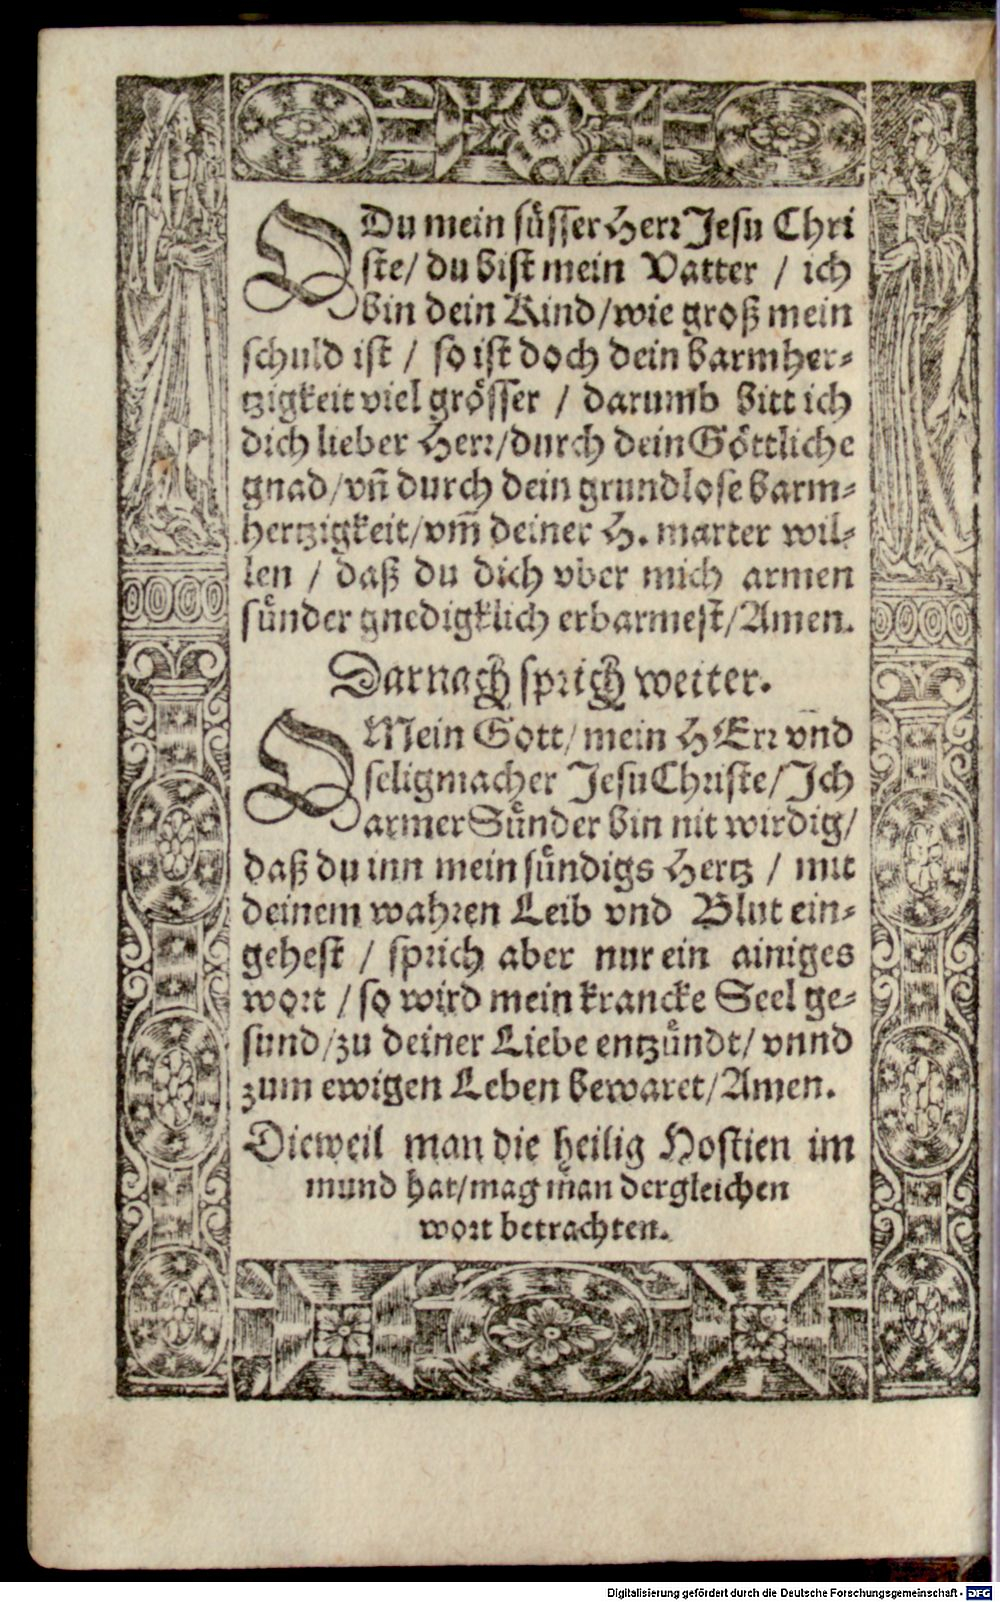 O Du mein süsser Herr Jesu Chri
ste/ du bist mein Vatter / ich
bin dein Kind/wie groß mein
schuld ist / so ist doch dein barmher-
tzigkeit viel grösser / darumb bitt ich
dich lieber Herr/durch dein Göttliche
gnad/vñ durch dein grundlose barm-
hertzigkeit/vm̃ deiner H. marter wil-
len / daß du dich vber mich armen
sünder gnedigklich erbarmest/Amen.
Darnach sprich weiter.
O Mein Gott/mein HErr vnd
seligmacher Jesu Christe/Ich
armer Sünder bin nit wirdig/
daß du inn mein sündigs Hertz / mit
deinem wahren Leib vnd Blut ein-
gehest / sprich aber nur ein ainiges
wort / so wird mein krancke Seel ge-
sund/zu deiner Liebe entzündt/ vnnd
zum ewigen Leben bewaret/Amen.
Dieweil man die heilig Hostien im
mund hat/mag man dergleichen
wort betrachten.
Digitalisierung gefördert durch die Deutsche Forschungsgemeinschaft - DFG